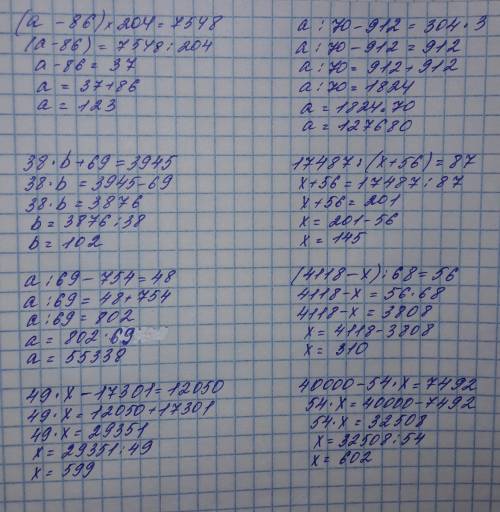 (a - 86) × 204 = 7548
(a - 86) = 7548 : 204
a - 86 = 37
a = 37 + 86
a = 123
a : 70 - 912 = 304 · 3
a : 70 - 912 = 912
a : 70 = 912 + 912
a : 70 = 1824
a = 1824 · 70
a = 127680
38 · b + 69 = 3945
38 · b = 3945 - 69
38 · b = 3876
b = 3876 : 38
b = 102
17487 : (x + 56) = 87
x + 56 = 17487 : 87
x + 56 = 201
x = 201 - 56
x = 145
a : 69 - 754 = 48
a : 69 = 48 + 754
a : 69 = 802
a = 802 · 69
a = 55338
(4118 - x) : 68 = 56
4118 - x = 56 · 68
4118 - x = 3808
x = 4118 - 3808
x = 310
49 · x - 17301 = 12050
49 · x = 12050 + 17301
49 · x = 29351
x = 29351 : 49
x = 599
40000 - 54 · x = 7492
54 · x = 40000 - 7492
54 · x = 32508
x = 32508 : 54
x = 602